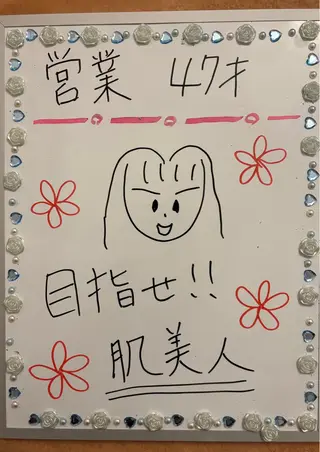 営業 47才
目指せ!!
肌美人